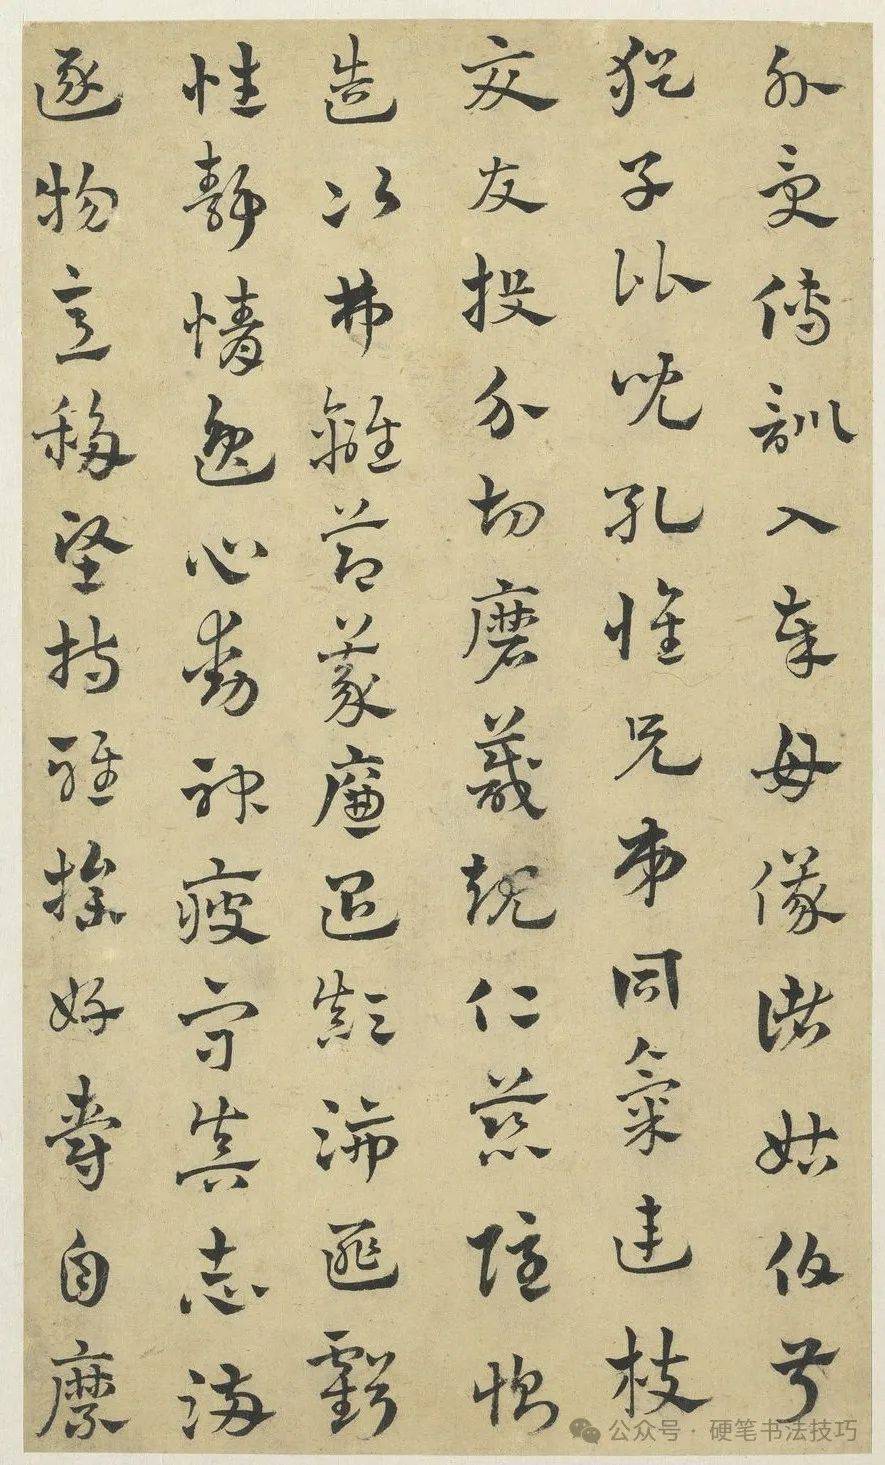 外受傅訓入奉母儀諸姑伯叔
猶子比兒孔懷兄弟同氣連枝
交友投分切磨箴規仁慈隱惻
造次弗離節義廉退顛沛匪虧
性靜情逸心動神疲守真志滿
逐物意移堅持雅操好爵自縻
公众号·硬笔书法技巧